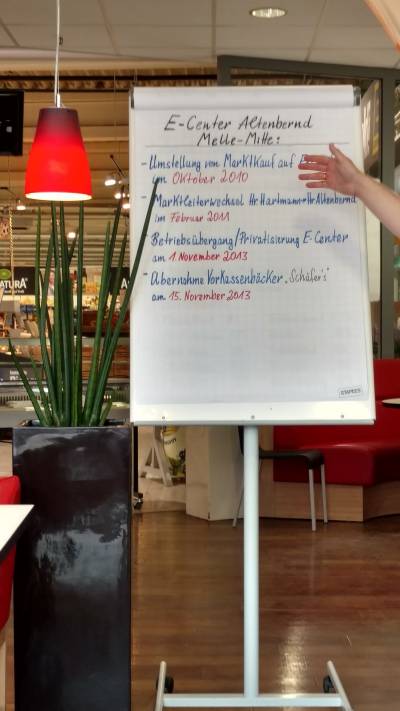 E-Center Altenbernd
Melle-Mitte:
- Umstellung von Marktkauf auf
im Oktober 2010
- Marktleiterwechsel Hr Hartmann→Hr Altenbernd
im Februar 2011
- Betriebsübergang/Privatisierung E-Center
am 1. November 2013
- Übernahme Vorkassenbäcker „Schäfer's"
am 15. November 2013
STAPLES
NATURA